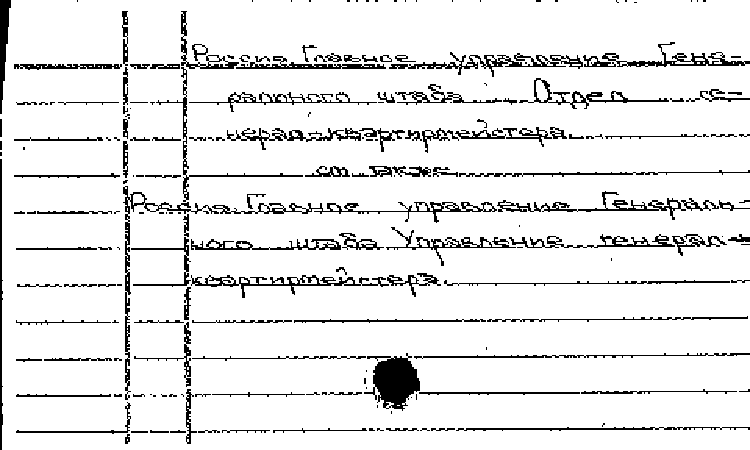 Россия. Главное управление Гене-
рального штаба. Отдел ге-
нерал-квартирмейстера.
см. также
Россия. Главное управление Генераль-
ного штаба Управление генерал-
квартирмейстера.